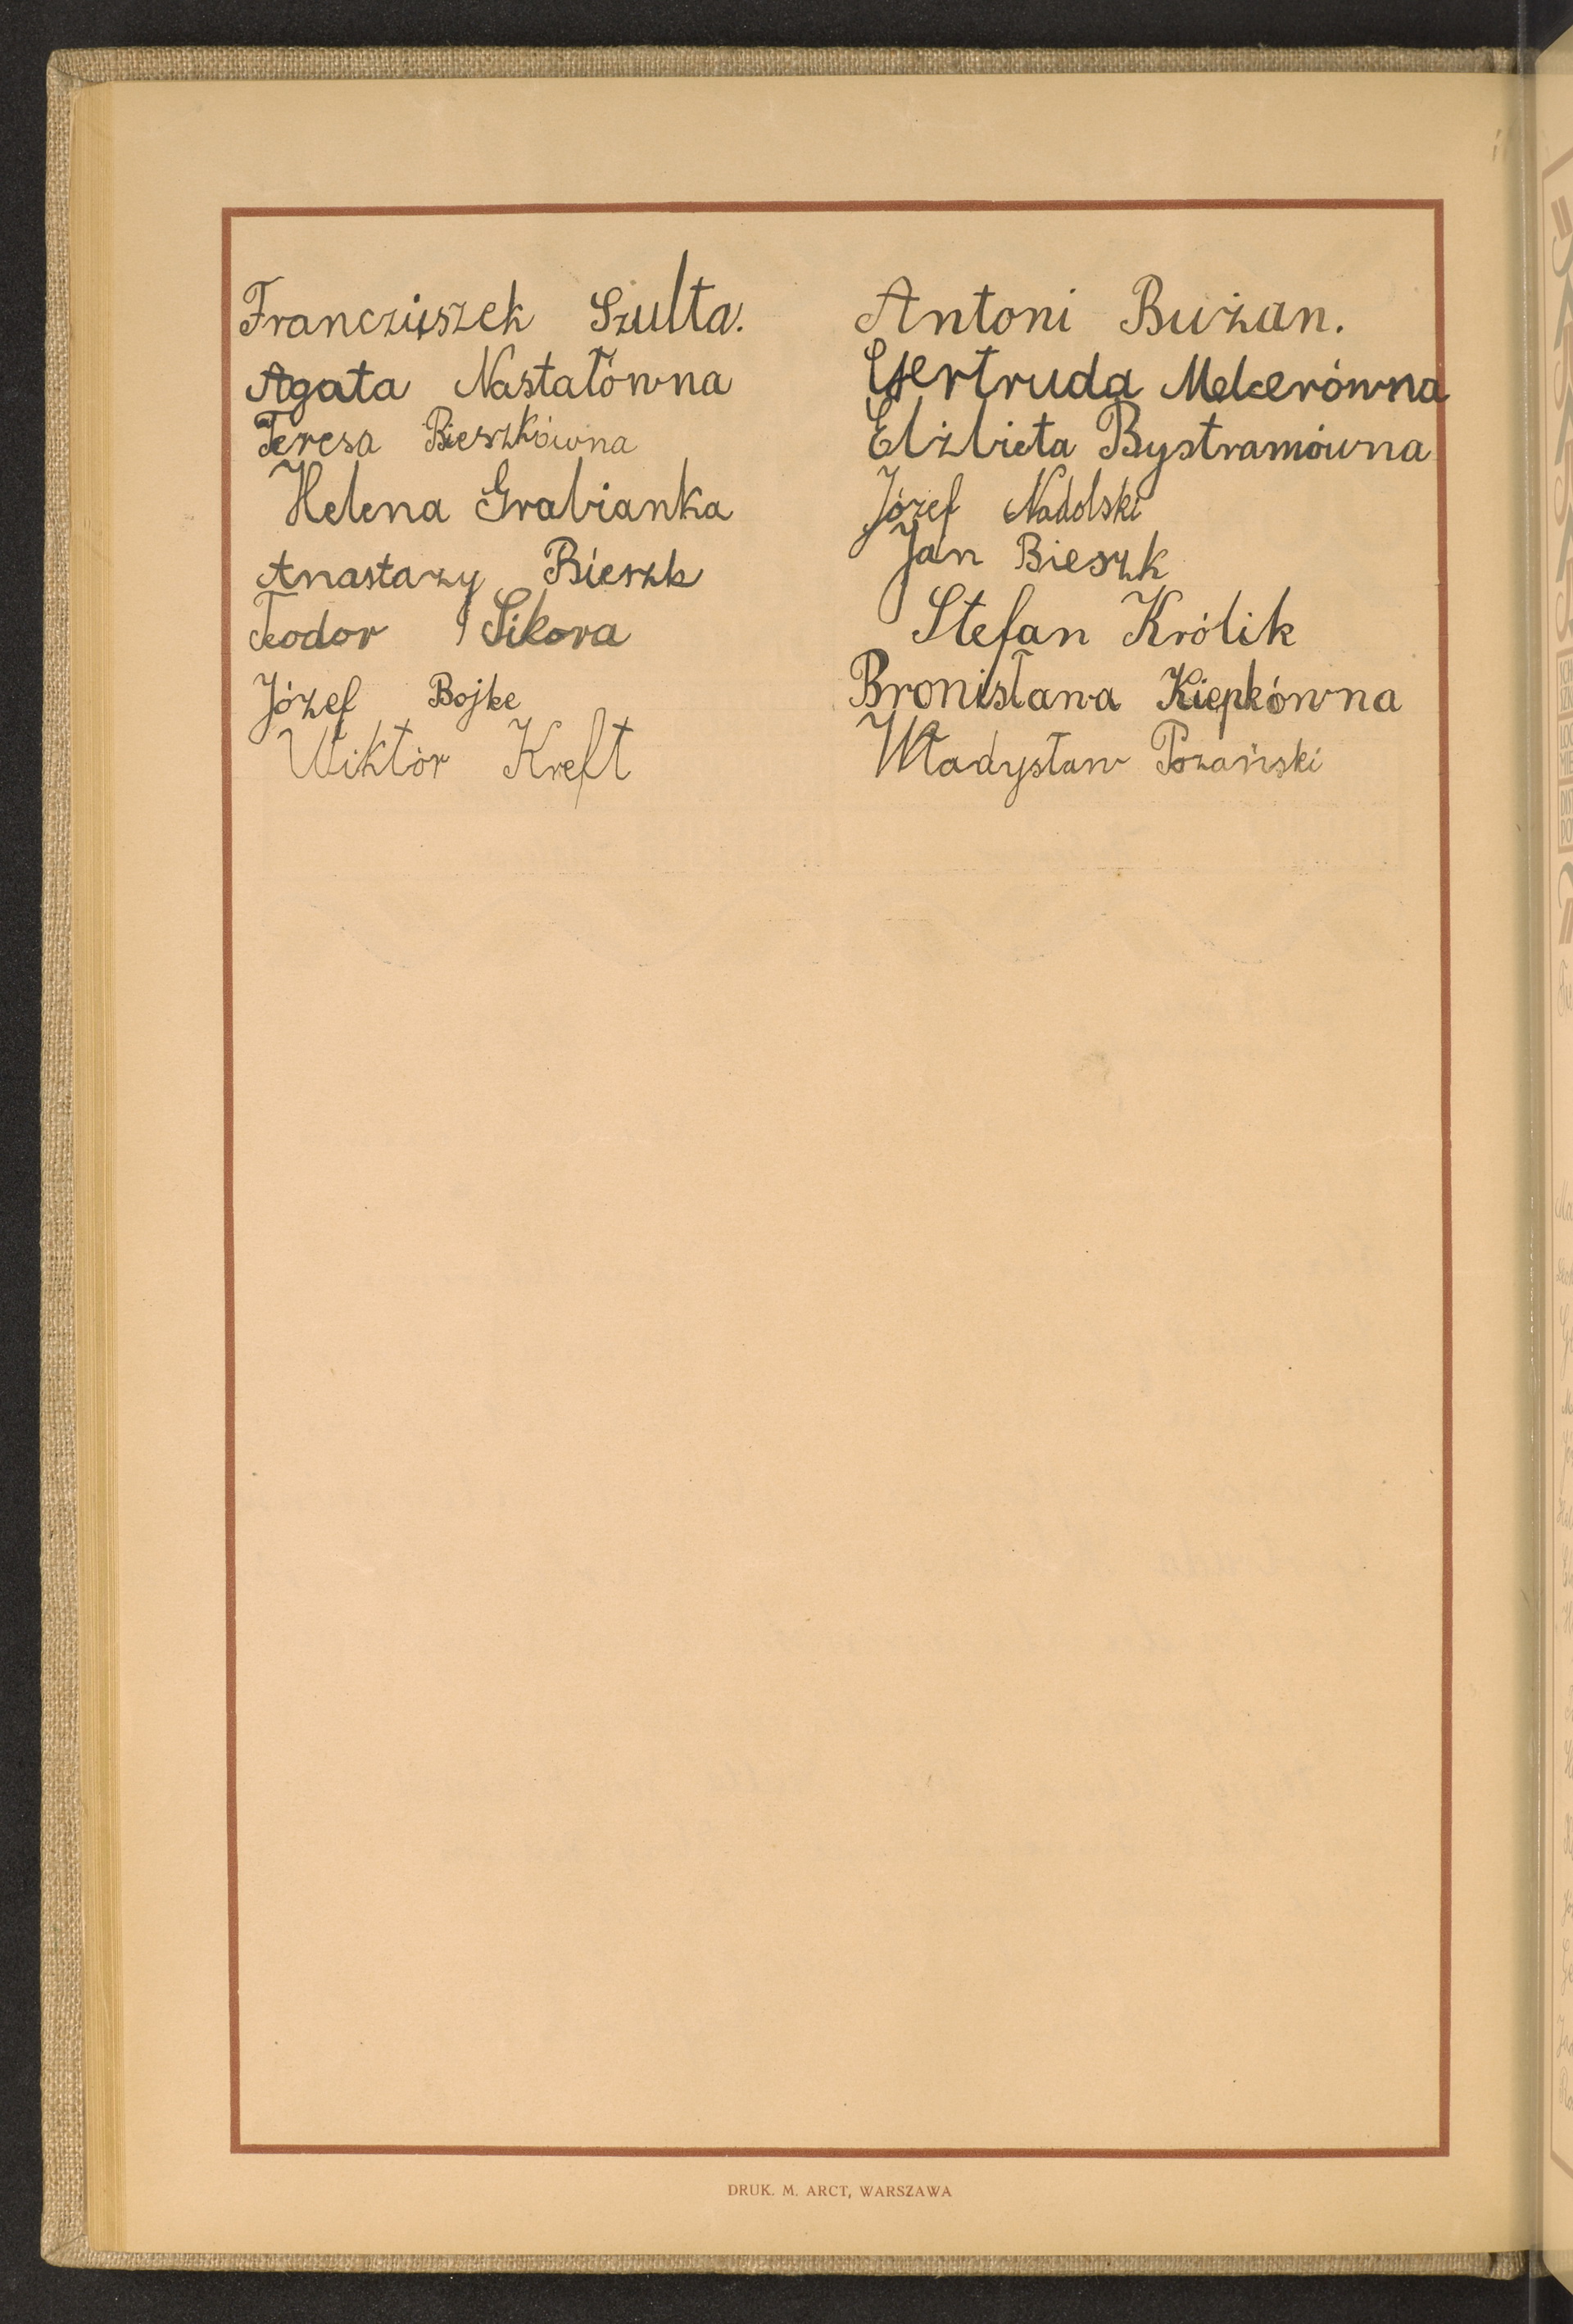 Francziszek Szulta.
Agata Nastałówna
Teresa Bieszkówna
Helena Grabianka
Anastazy Bieszk
Teodor Sikora
Józef Bojke
Wiktor Kreft
Antoni Bużan.
Gertruda Melcerówna
Elżbieta Bystramówna
Józef Nadolski
Jan Bieszk
Stefan Królik
Bronisława Kiepkówna
Władysław Pozański
DRUK. M. ARCT, WARSZAWA